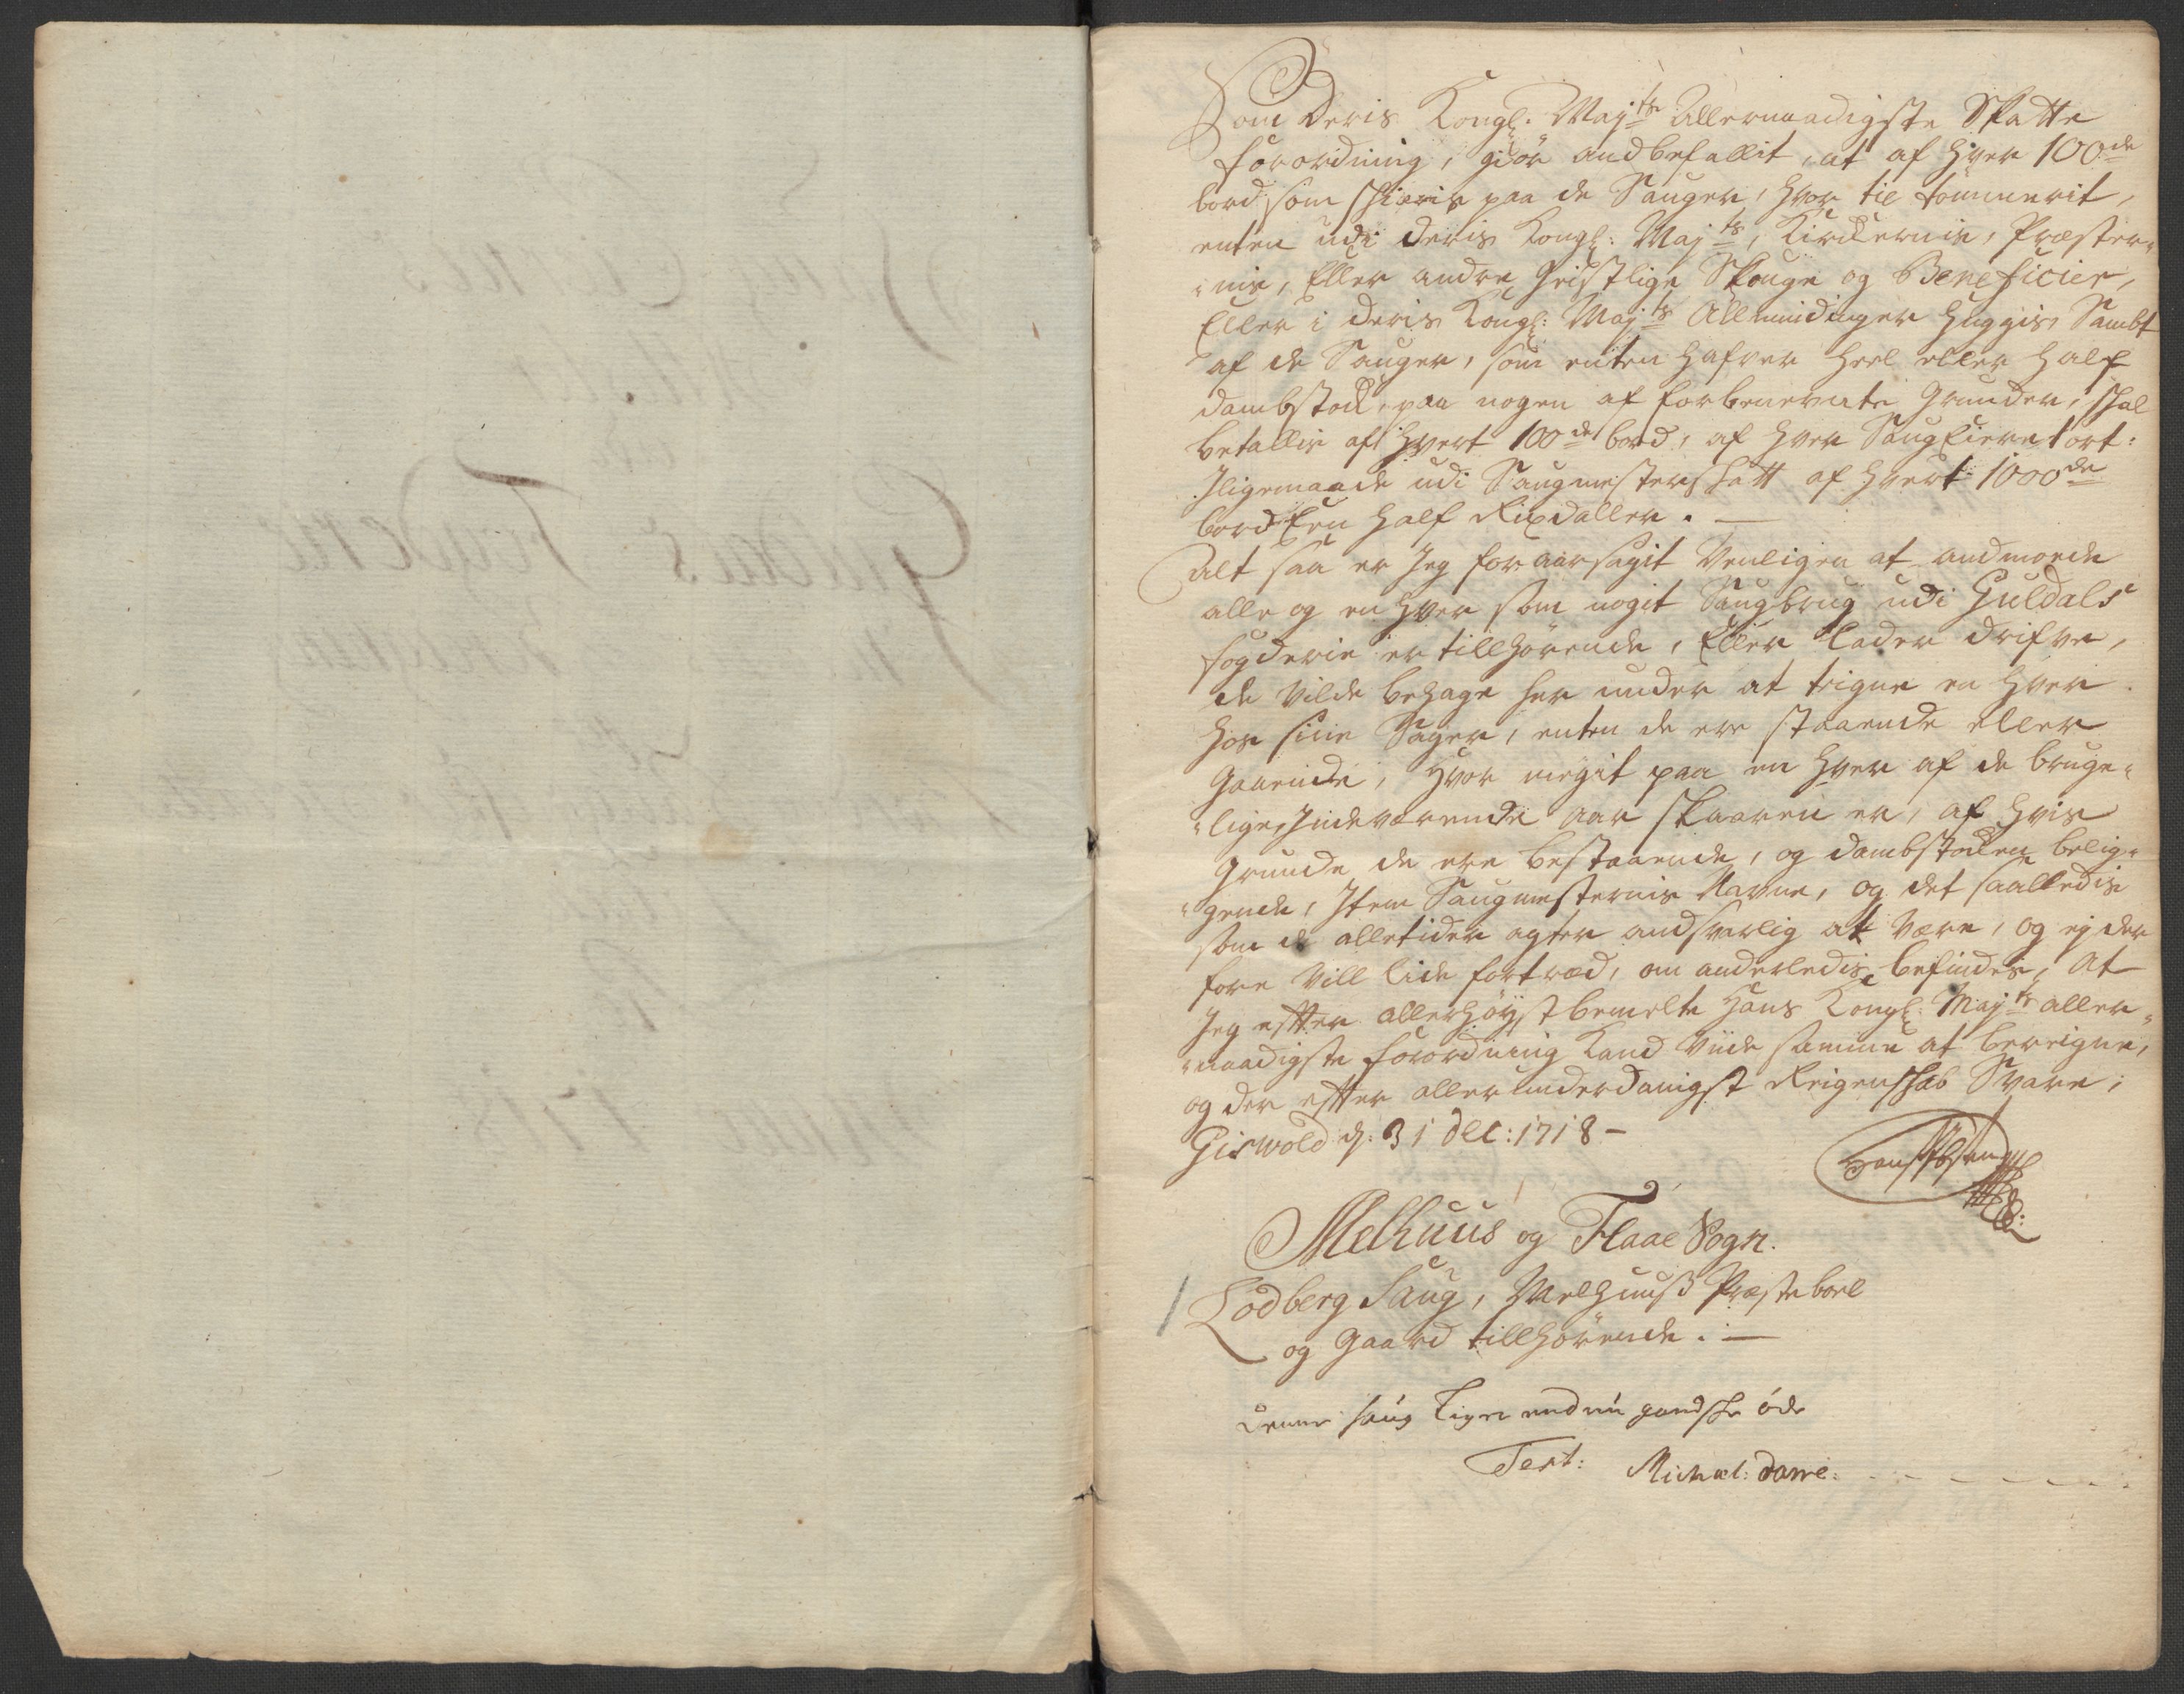 Som Deris Kongl. Maj:ts Allernaadigste Skatte
forordning, giør andbefallit, at af hver 100de
bord som skieris paa de Sauger, hvor til tømmerit,
enten udi Deris Kongl: Maj:ts, Kirckernis, Præster-
-nis, Eller andre Geistlige Skouge og Beneficier,
Eller i Deris Kongl: Maj:ts Allmindinger huggis, Sambt
af de Sauger, som enten hafver heel eller half
dambstock, paa nogen af forbenevnte Grunder, skal
betallis af hvert 100de bord, af hver Saug Eiere 1 ort:
Iligemaade udi Saugmesterskatt af hvert 1000de
bord Een half Rixdaller. —
Alt saa er Jeg foraarsagit Venligen at andmoede
alle og en hver som nogit Saugbrug udi Guldals
fogderie er tillhørende, Eller lader drifve,
de Vilde behage her under at teigne en hver
hos sine Sager, enten de ere staaende eller
Gaaende, hvor megit paa en hver af de bruge-
-lige, Indeværende aar skaaren er, af hvis
Grunde de ere bestaaende, og dambstocken belig-
-gende, Item Saugmesternis Navne, og det saalledis
som de alletider agter andsvarlig at være, og ej der
fore Vill lide fortræd, om anderledis befindes, At
Jeg effter allerhøyst bemelte Hans Kongl: Maj:ts aller-
-naadigste forordning kand Viide samme at bereigne,
og der effter allerunderdanigst Reigenskab Svare;
Giswold d: 31 dec: 1718 —
Melhuus og Flaae Sogn.
1 Lodberg Saug, Melhuuß Præsteboel
og Gaard tillhørende. —
denne saug liger endnu gandske øde
Test: Michael: Darre: